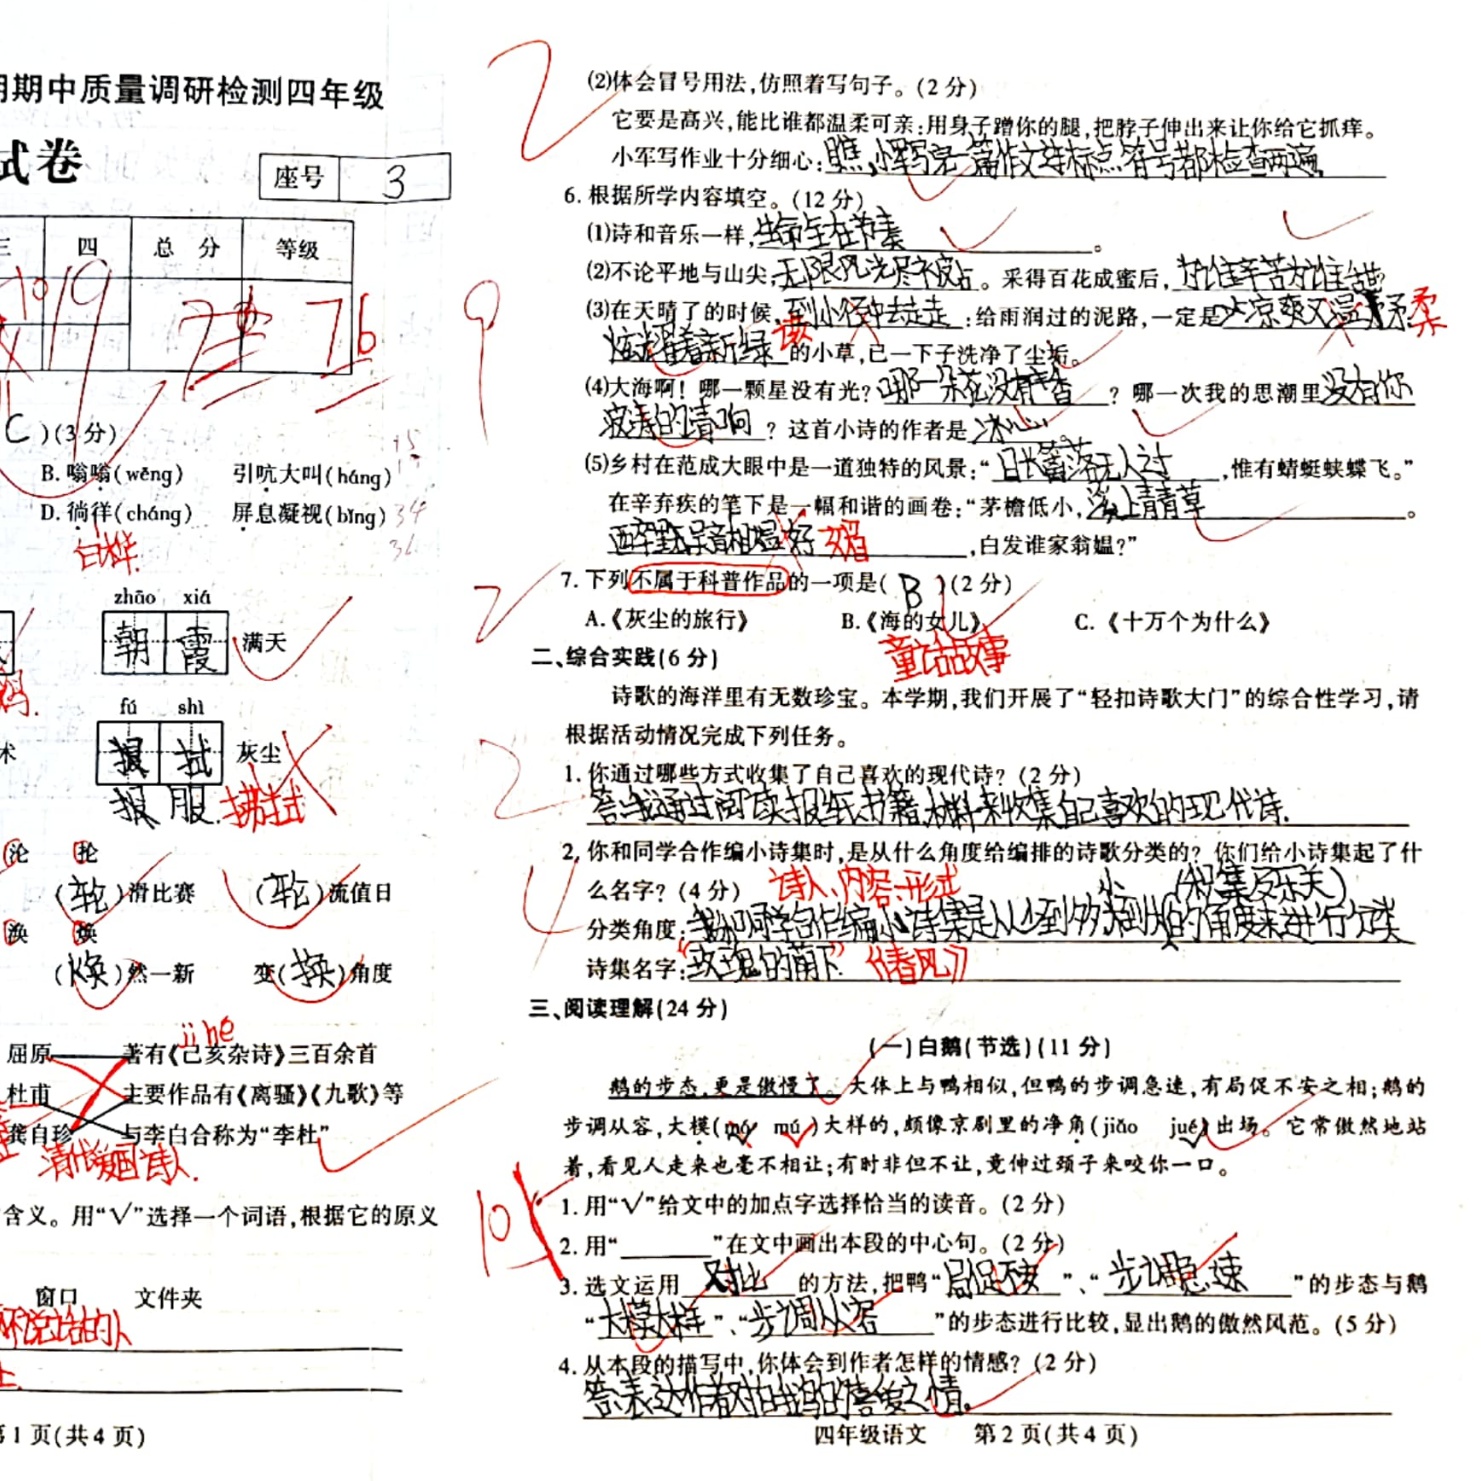 期中质量调研检测四年级
试卷
座号 3
三 四 总分 等级
19 76
C )(3分)
B. 嗡嗡(wēng) 引吭大叫(háng)
D. 徜徉(cháng) 屏息凝视(bǐng)
zhāo xiá
朝霞 满天
fú shì
灰尘
拂拭
沦 抡
(轮)滑比赛 (轮)流值日
涣 焕
(焕)然一新 变(换)角度
jǐ hé
屈原 著有《己亥杂诗》三百余首
杜甫 主要作品有《离骚》《九歌》等
龚自珍 与李白合称为“李杜”
清代爱国诗人.
含义。用“√”选择一个词语,根据它的原义
窗口 文件夹
第1页(共4页)
2
⑵体会冒号用法,仿照着写句子。(2分)
它要是高兴,能比谁都温柔可亲:用身子蹭你的腿,把脖子伸出来让你给它抓痒。
小军写作业十分细心:瞧,小军写完一篇作文连标点符号都检查两遍
6. 根据所学内容填空。(12分)
9
⑴诗和音乐一样,生命全在节奏。
⑵不论平地与山尖,无限风光尽被占。采得百花成蜜后,为谁辛苦为谁甜?
⑶在天晴了的时候,到小径中去走走:给雨润过的泥路,一定是凉爽又温柔
炫耀着新绿的小草,已一下子洗净了尘垢。
⑷大海啊!哪一颗星没有光?哪一朵花没有香?哪一次我的思潮里没有你
波涛的清响?这首小诗的作者是冰心。
⑸乡村在范成大眼中是一道独特的风景:“日长篱落无人过,惟有蜻蜓蛱蝶飞。”
在辛弃疾的笔下是一幅和谐的画卷:“茅檐低小,溪上青青草。
醉里吴音相媚好,白发谁家翁媪?”
2
7. 下列不属于科普作品的一项是( B )(2分)
A.《灰尘的旅行》 B.《海的女儿》 C.《十万个为什么》
童话故事
二、综合实践(6分)
诗歌的海洋里有无数珍宝。本学期,我们开展了“轻扣诗歌大门”的综合性学习,请
根据活动情况完成下列任务。
2
1. 你通过哪些方式收集了自己喜欢的现代诗?(2分)
答:我通过阅读报纸书籍材料来收集自己喜欢的现代诗.
4
2. 你和同学合作编小诗集时,是从什么角度给编排的诗歌分类的?你们给小诗集起了什
么名字?(4分) 诗人、内容、形式
分类角度:我和同学合作编小诗集是从少到多的角度来进行分类
诗集名字:“玫瑰的荫下” 《春风》
三、阅读理解(24分)
(一)白鹅(节选)(11分)
鹅的步态,更是傲慢了。大体上与鸭相似,但鸭的步调急速,有局促不安之相;鹅的
步调从容,大模(mó mú)大样的,颇像京剧里的净角(jiǎo jué)出场。它常傲然地站
着,看见人走来也毫不相让;有时非但不让,竟伸过颈子来咬你一口。
10
1. 用“√”给文中的加点字选择恰当的读音。(2分)
2. 用“____”在文中画出本段的中心句。(2分)
3. 选文运用对比的方法,把鸭“局促不安”、“步调急速”的步态与鹅
“大模大样”、“步调从容”的步态进行比较,显出鹅的傲然风范。(5分)
4. 从本段的描写中,你体会到作者怎样的情感?(2分)
答:表达作者对白鹅的喜爱之情。
四年级语文 第2页(共4页)